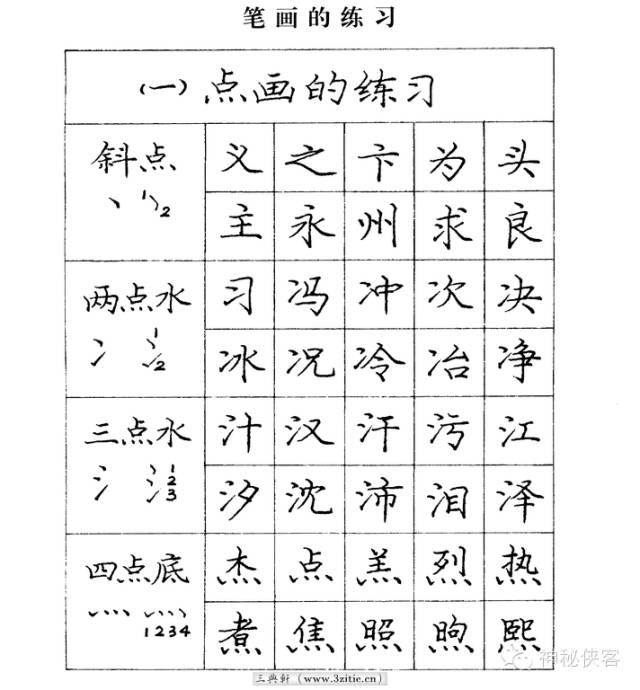 笔画的练习
(一)点画的练习
斜点
1 2
义 之 卞 为 头
主 永 州 求 良
两点水
1
2
习 冯 冲 次 决
冰 况 冷 冶 净
三点水
1
2
3
汁 汉 汗 污 江
汐 沈 沛 泪 泽
四点底
1234
杰 点 羔 烈 热
煮 焦 照 煦 熙
神秘侠客
三典軒(www.3zitie.cn)